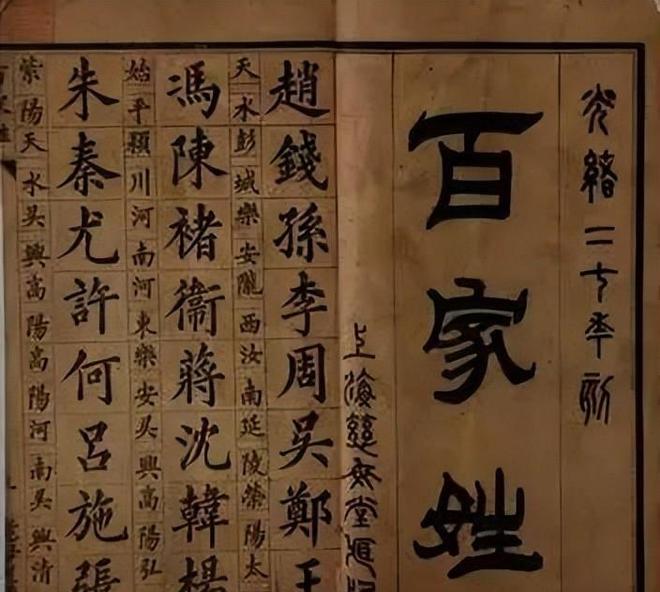 光緒二十年刻
百家姓
上海慈堂
趙錢孫李周吳鄭王
天水彭城樂安隴西汝南延陵滎陽太
馮陳褚衛蔣沈韓楊
始平穎川河南河東樂安吳興高陽弘
朱秦尤許何呂施張
紫陽天水吳興高陽高陽河南吳興清